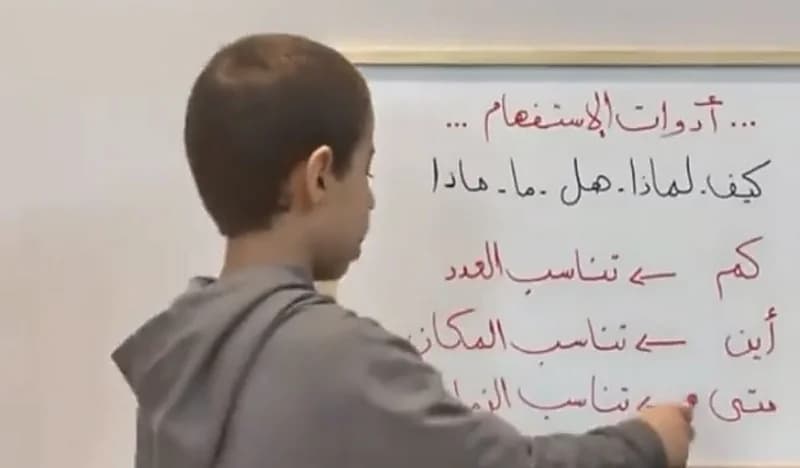 ... أدوات الإستفهام ...
كيف. لماذا. هل. ما. ماذا
كم ← تناسب العدد
أين ← تناسب المكان
متى ← تناسب